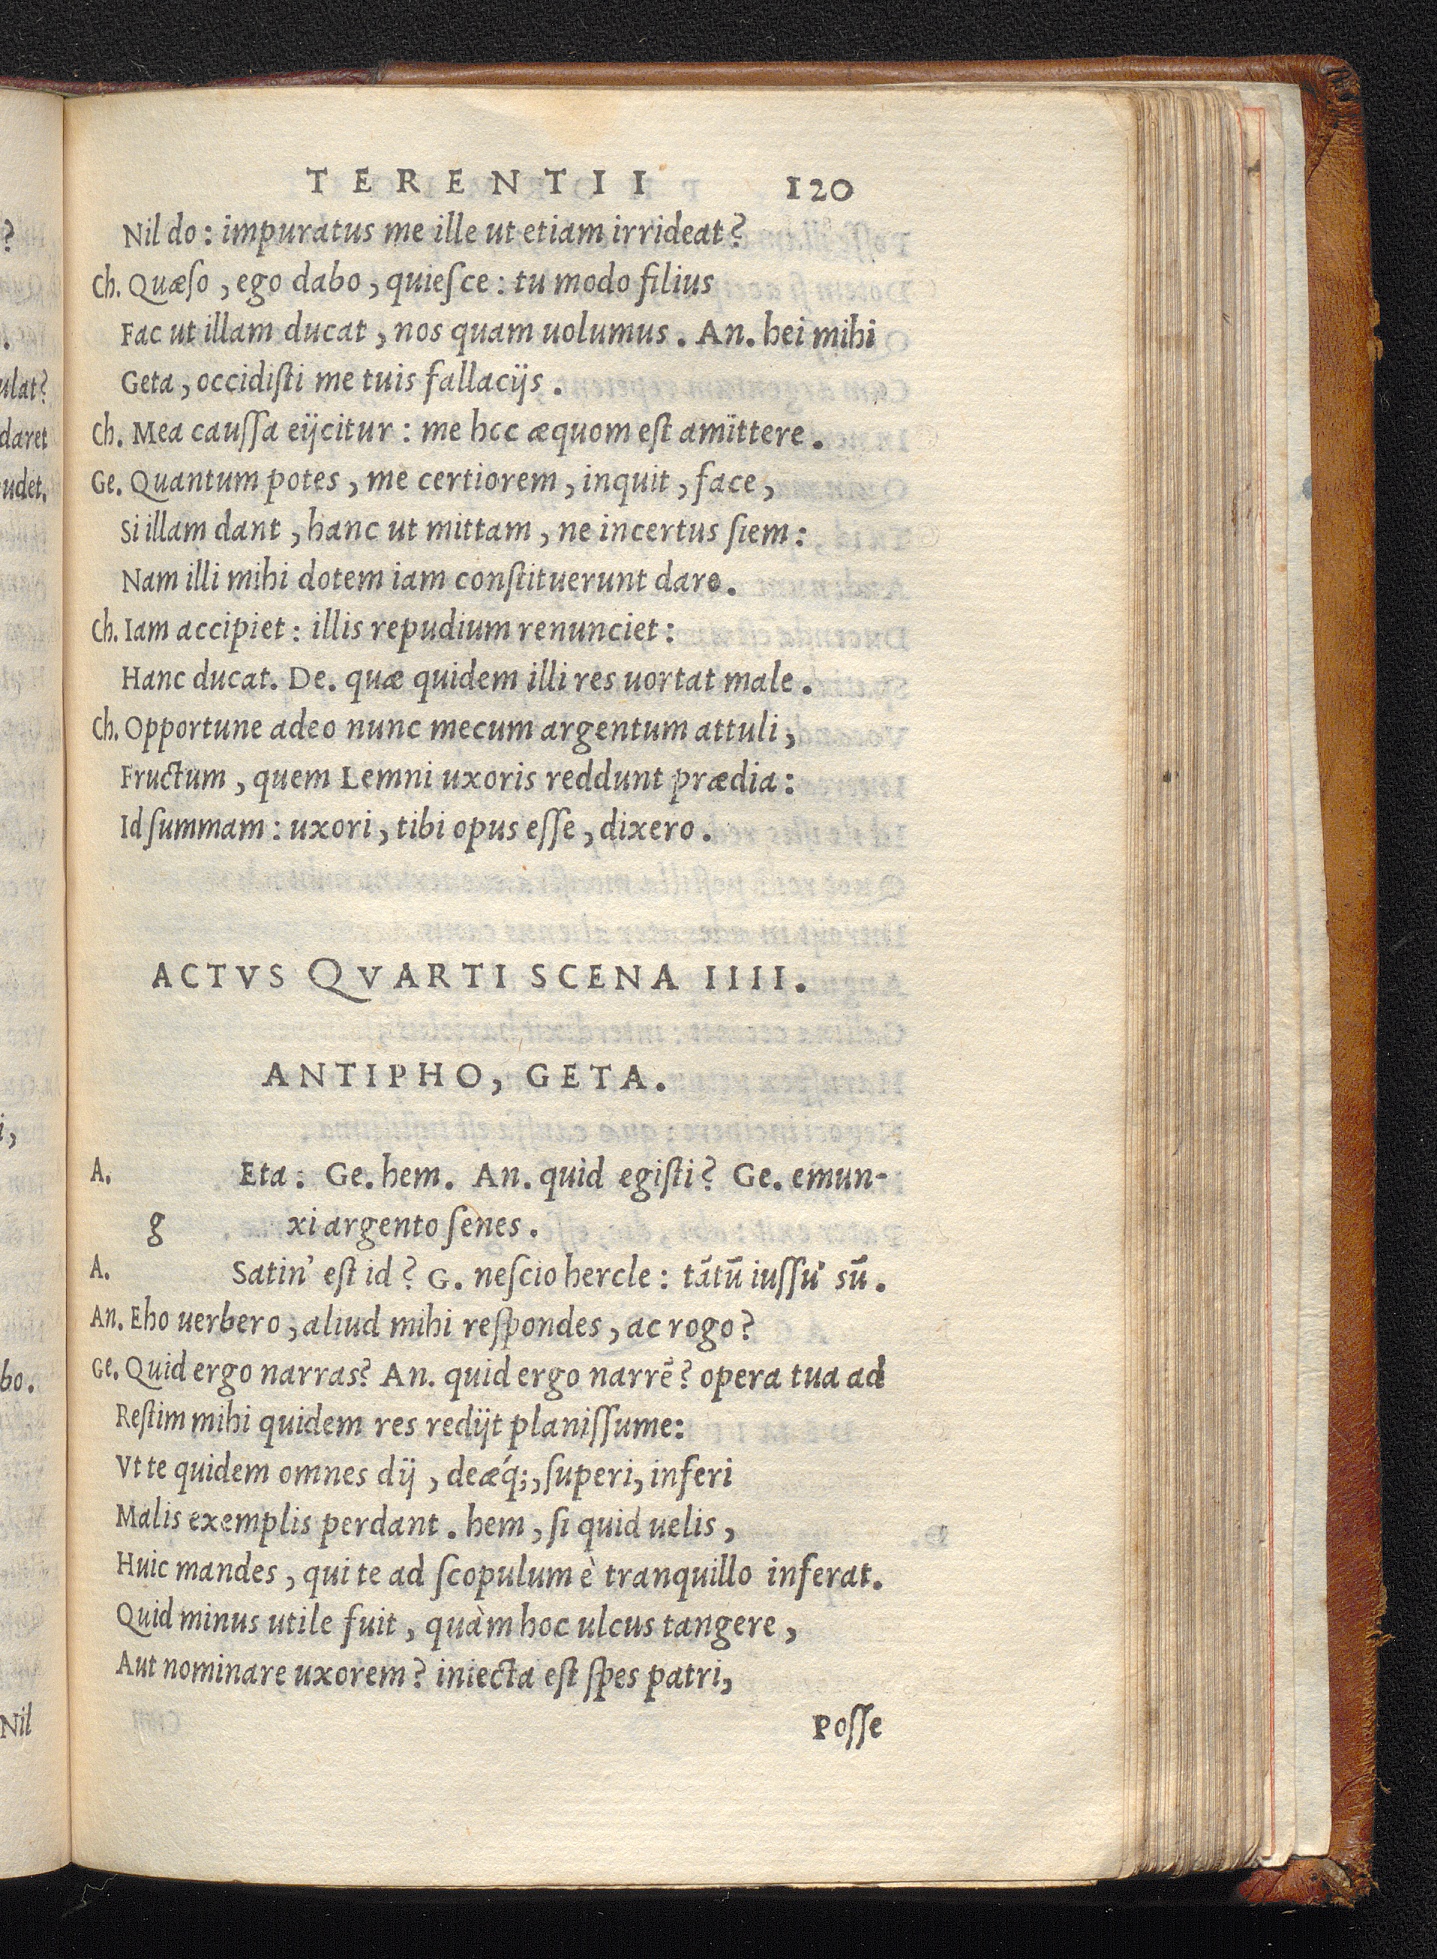 TERENTII 120
Nil do: impuratus me ille ut etiam irrideat?
Ch. Quæſo, ego dabo, quieſce: tu modo filius
Fac ut illam ducat, nos quam uolumus. An. hei mihi
Geta, occidiſti me tuis fallacijs.
Ch. Mea cauſſa eijcitur: me hcc æquom eſt amittere.
Ge. Quantum potes, me certiorem, inquit, face,
Si illam dant, hanc ut mittam, ne incertus ſiem:
Nam illi mihi dotem iam conſtituerunt dare.
Ch. Iam accipiet: illis repudium renunciet:
Hanc ducat. De. quæ quidem illi res uortat male.
Ch. Opportune adeo nunc mecum argentum attuli,
Fructum, quem Lemni uxoris reddunt prædia:
Id ſummam: uxori, tibi opus eſſe, dixero.
ACTVS QVARTI SCENA IIII.
ANTIPHO, GETA.
A. Eta: Ge. hem. An. quid egiſti? Ge. emun-
g xi argento ſenes.
A. Satin' eſt id? G. neſcio hercle: tātū iuſſu' sū.
An. Eho uerbero, aliud mihi reſpondes, ac rogo?
Ge. Quid ergo narras? An. quid ergo narrē? opera tua ad
Reſtim mihi quidem res redijt planiſſume:
Vt te quidem omnes dij, deæq́;, ſuperi, inferi
Malis exemplis perdant. hem, ſi quid uelis,
Huic mandes, qui te ad ſcopulum è tranquillo inferat.
Quid minus utile fuit, quàm hoc ulcus tangere,
Aut nominare uxorem? iniecta eſt ſpes patri,
Poſſe
?
.
ulat?
daret
udet.
i,
bo.
Nil